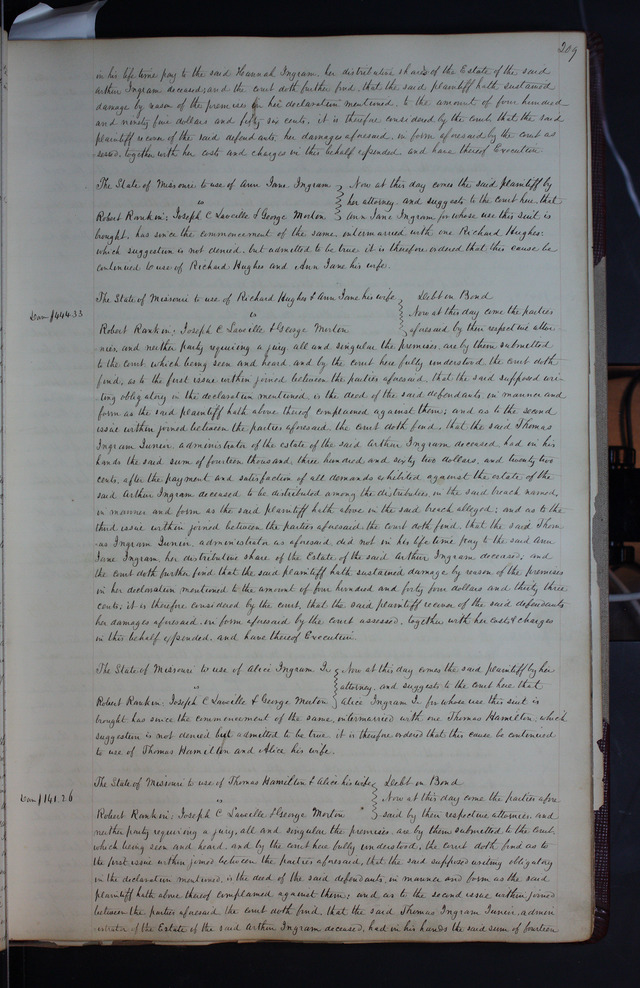 209
in his life time pay to the said Hannah Ingram, her distributive share of the Estate of the said
Arthur Ingram deceased; and the court doth further find, that the said plaintiff hath sustained
damage by reason of the premises in her declaration mentioned, to the amount of four hundred
and ninety five dollars and fifty six cents, it is therefore considered by the court, that the said
plaintiff recover of the said defendants her damages aforesaid, in form aforesaid by the court as
sessed, together with her costs and charges in this behalf expended, and have thereof Execution.
The State of Missouri to use of Ann Jane Ingram } Now at this day comes the said plaintiff by
vs } her attorney, and suggests to the court here, that
Robert Rankin; Joseph C Laveille & George Morton } Ann Jane Ingram for whose use this suit is
brought, has since the commencement of the same, intermarried with one Richard Hughes;
which suggestion is not denied, but admitted to be true, it is therefore ordered that this cause be
continued to use of Richard Hughes and Ann Jane his wife.
The State of Missouri to use of Richard Hughes & Ann Jane his wife } Debt on Bond
Dam $444.33
vs } Now at this day come the parties
Robert Rankin; Joseph C Laveille & George Morton } aforesaid by their respective attor-
nies, and neither party requiring a jury, all and singular the premises, are by them submitted
to the court, which being seen and heard and by the court here fully understood, the court doth
find, as to the first issue within joined between the parties aforesaid, that the said supposed wri-
ting obligatory in the declaration mentioned, is the deed of the said defendants, in manner and
form as the said plaintiff hath above thereof complained against them; and as to the second
issue within joined between the parties aforesaid, the court doth find, that the said Thomas
Ingram Junior, administrator of the estate of the said Arthur Ingram deceased, had in his
hands the said sum of fourteen thousand, three hundred and sixty two dollars, and twenty two
cents, after the payment and satisfaction of all demands exhibited against the estate of the
said Arthur Ingram deceased to be distributed among the distributees, in the said breach named,
in manner and form as the said plaintiff hath above in the said breach alleged; and as to the
third issue within joined between the parties aforesaid, the court doth find, that the said Thom
-as Ingram Junior, administrator as aforesaid, did not in his life time pay to the said Ann
Jane Ingram, her distributive share of the Estate of the said Arthur Ingram deceased; and
the court doth further find that the said plaintiff hath sustained damage by reason of the premises
in her declaration mentioned to the amount of four hundred and forty four dollars and thirty three
cents; it is therefore considered by the court, that the said plaintiff recover of the said defendants
her damages aforesaid, in form aforesaid by the court assessed, together with her costs & charges
in this behalf expended, and have thereof Execution.
The State of Missouri to use of Alice Ingram Jr } Now at this day comes the said plaintiff by her
vs } attorney, and suggests to the court here that
Robert Rankin; Joseph C Laveille & George Morton } Alice Ingram Jr for whose use this suit is
brought has since the commencement of the same, intermarried with one Thomas Hamilton; which
suggestion is not denied but admitted to be true, it is therefore ordered that this cause be continued
to use of Thomas Hamilton and Alice his wife.
The State of Missouri to use of Thomas Hamilton & Alice his wife } Debt on Bond
Dam $141.26
vs } Now at this day come the parties afore
Robert Rankin; Joseph C Laveille & George Morton } said by their respective attornies, and
neither party requiring a jury, all and singular the premises, are by them submitted to the court,
which being seen and heard, and by the court here fully understood, the court doth find as to
the first issue within joined between the parties aforesaid, that the said supposed writing obligatory
in the declaration mentioned, is the deed of the said defendants, in manner and form as the said
plaintiff hath above thereof complained against them; and as to the second issue within joined
between the parties aforesaid the court doth find, that the said Thomas Ingram Junior, admin-
istrator of the Estate of the said Arthur Ingram deceased, had in his hands the said sum of fourteen